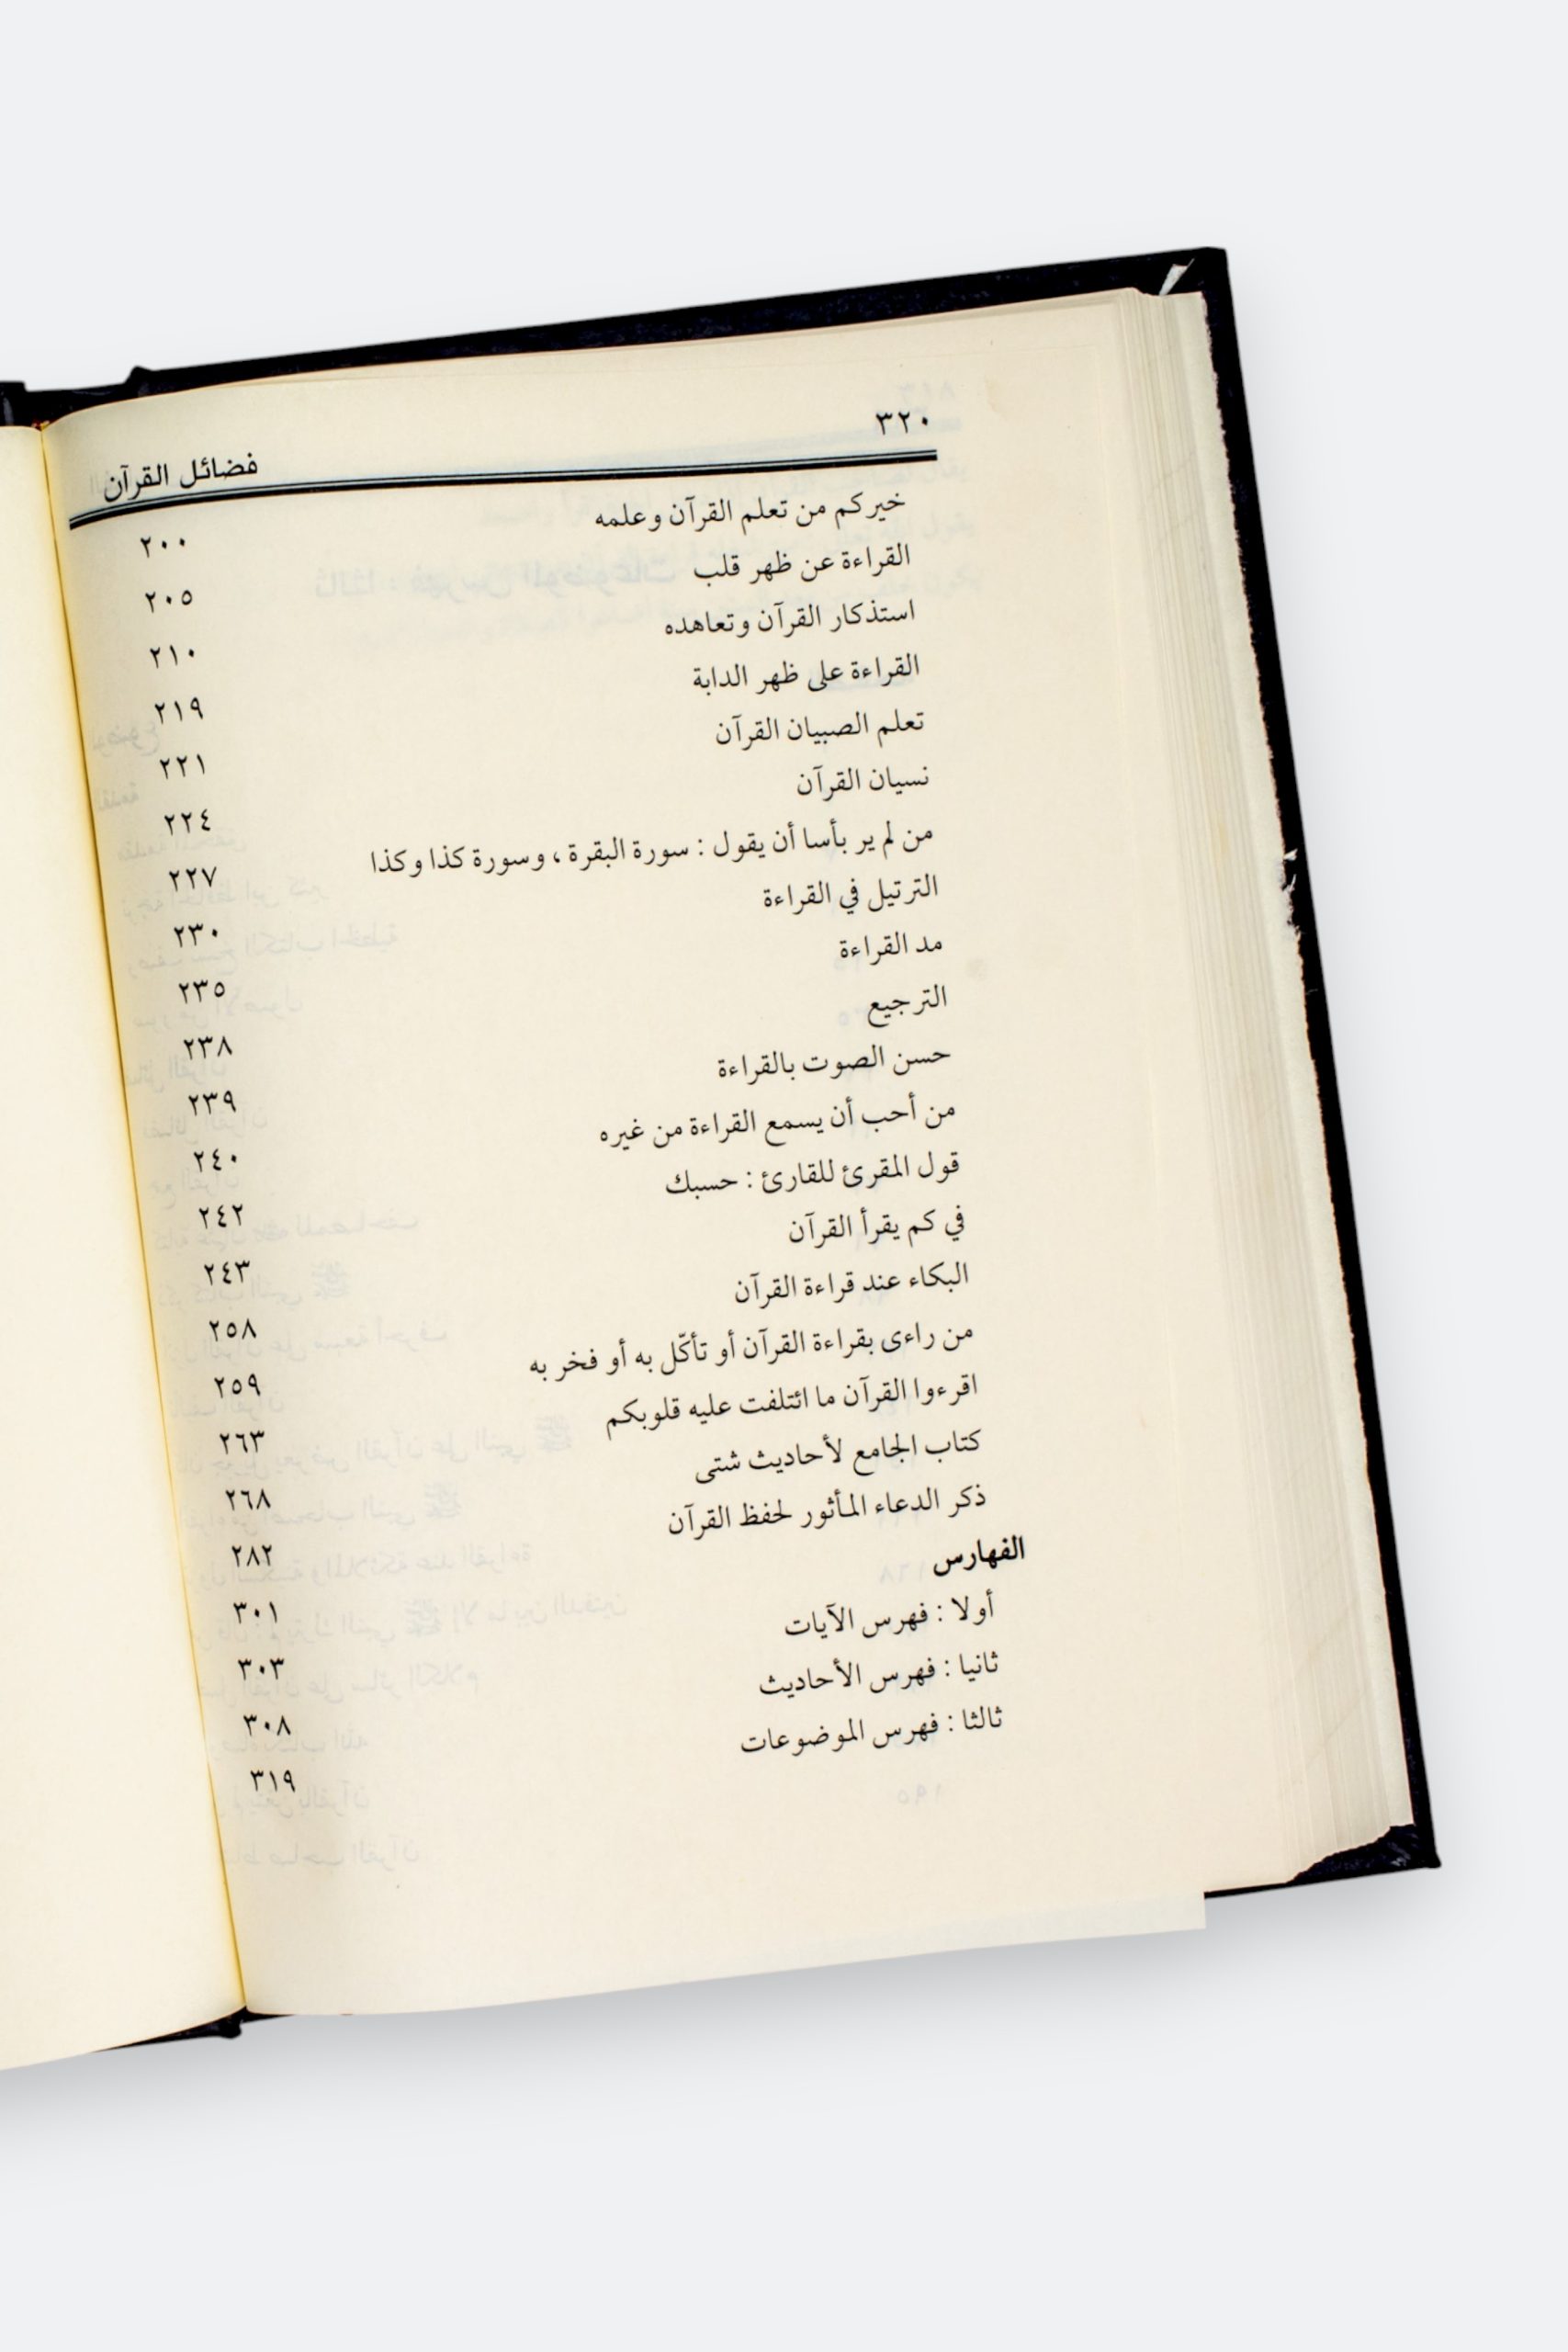 ٣٢٠ فضائل القرآن
خيركم من تعلم القرآن وعلمه ٢٠٠
القراءة عن ظهر قلب ٢٠٥
استذكار القرآن وتعاهده ٢١٠
القراءة على ظهر الدابة ٢١٩
تعلم الصبيان القرآن ٢٢١
نسيان القرآن ٢٢٤
من لم ير بأسا أن يقول : سورة البقرة ، وسورة كذا وكذا ٢٢٧
الترتيل في القراءة ٢٣٠
مد القراءة ٢٣٥
الترجيع ٢٣٨
حسن الصوت بالقراءة ٢٣٩
من أحب أن يسمع القراءة من غيره ٢٤٠
قول المقرئ للقارئ : حسبك ٢٤٢
في كم يقرأ القرآن ٢٤٣
البكاء عند قراءة القرآن ٢٥٨
من راءى بقراءة القرآن أو تأكّل به أو فخر به ٢٥٩
اقرءوا القرآن ما ائتلفت عليه قلوبكم ٢٦٣
كتاب الجامع لأحاديث شتى ٢٦٨
ذكر الدعاء المأثور لحفظ القرآن ٢٨٢
الفهارس ٣٠١
أولا : فهرس الآيات ٣٠٣
ثانيا : فهرس الأحاديث ٣٠٨
ثالثا : فهرس الموضوعات ٣١٩